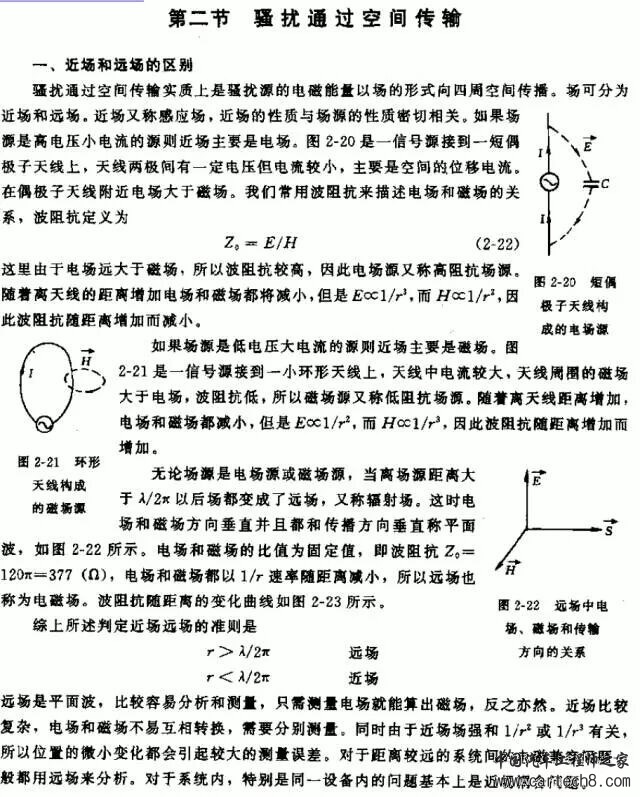 第二节 骚扰通过空间传输
一、近场和远场的区别
骚扰通过空间传输实质上是骚扰源的电磁能量以场的形式向四周空间传播。场可分为
近场和远场。近场又称感应场，近场的性质与场源的性质密切相关。如果场
源是高电压小电流的源则近场主要是电场。图 2-20 是一信号源接到一短偶
极子天线上，天线两极间有一定电压但电流较小，主要是空间的位移电流。
在偶极子天线附近电场大于磁场。我们常用波阻抗来描述电场和磁场的关
系，波阻抗定义为
Z₀ = E/H (2-22)
这里由于电场远大于磁场，所以波阻抗较高，因此电场源又称高阻抗场源。
随着离天线的距离增加电场和磁场都将减小，但是 E∝1/r³，而 H∝1/r²，因
此波阻抗随距离增加而减小。
I
E
C
I
图 2-20 短偶
极子天线构
成的电场源
如果场源是低电压大电流的源则近场主要是磁场。图
2-21 是一信号源接到一小环形天线上，天线中电流较大，天线周围的磁场
大于电场，波阻抗低，所以磁场源又称低阻抗场源。随着离天线距离增加，
电场和磁场都减小，但是 E∝1/r²，而 H∝1/r³，因此波阻抗随距离增加而
增加。
I
H
图 2-21 环形
天线构成
的磁场源
无论场源是电场源或磁场源，当离场源距离大
于 λ/2π 以后场都变成了远场，又称辐射场。这时电
场和磁场方向垂直并且都和传播方向垂直称平面
波，如图 2-22 所示。电场和磁场的比值为固定值，即波阻抗 Z₀=
120π=377 (Ω)，电场和磁场都以 1/r 速率随距离减小，所以远场也
称为电磁场。波阻抗随距离的变化曲线如图 2-23 所示。
E
S
H
图 2-22 远场中电
场、磁场和传输
方向的关系
综上所述判定近场远场的准则是
r > λ/2π 远场
r < λ/2π 近场
远场是平面波，比较容易分析和测量，只需测量电场就能算出磁场，反之亦然。近场比较
复杂，电场和磁场不易互相转换，需要分别测量。同时由于近场场强和 1/r² 或 1/r³ 有关，
所以位置的微小变化都会引起较大的测量误差。对于距离较远的系统间的电磁兼容问题一
般都用远场来分析。对于系统内，特别是同一设备内的问题基本上是近场
中国汽车工程师之家
www.cartech8.com